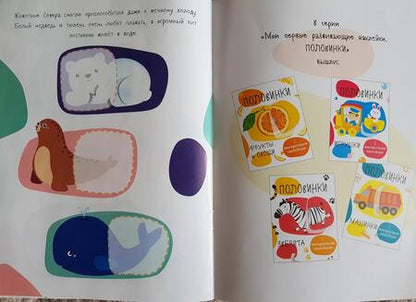 Животные Севера смогли приспособиться даже к вечному холоду.
Белый медведь и тюлень очень любят плавать, а огромный кит
постоянно живёт в воде.
В серии
«Мои первые развивающие наклейки.
ПОЛОВИНКИ»
вышли:
ПОЛОВИНКИ
ФРУКТЫ
ОВОЩИ
ПОЛОВИНКИ
ИГРУШКИ
ПОЛОВИНКИ
ЗВЕРЯТА
ПОЛОВИНКИ
МАШИНКИ